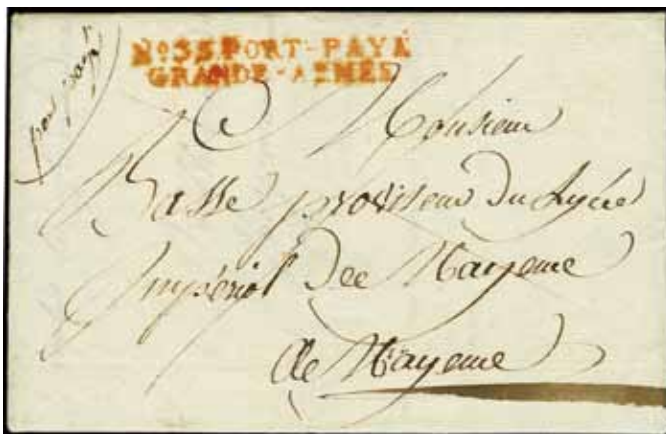 port payé
No 35 PORT-PAYÉ
GRANDE-ARMÉE
Monsieur
Basse proviseur Du Lycée
Impérial De Mayence
de Mayence